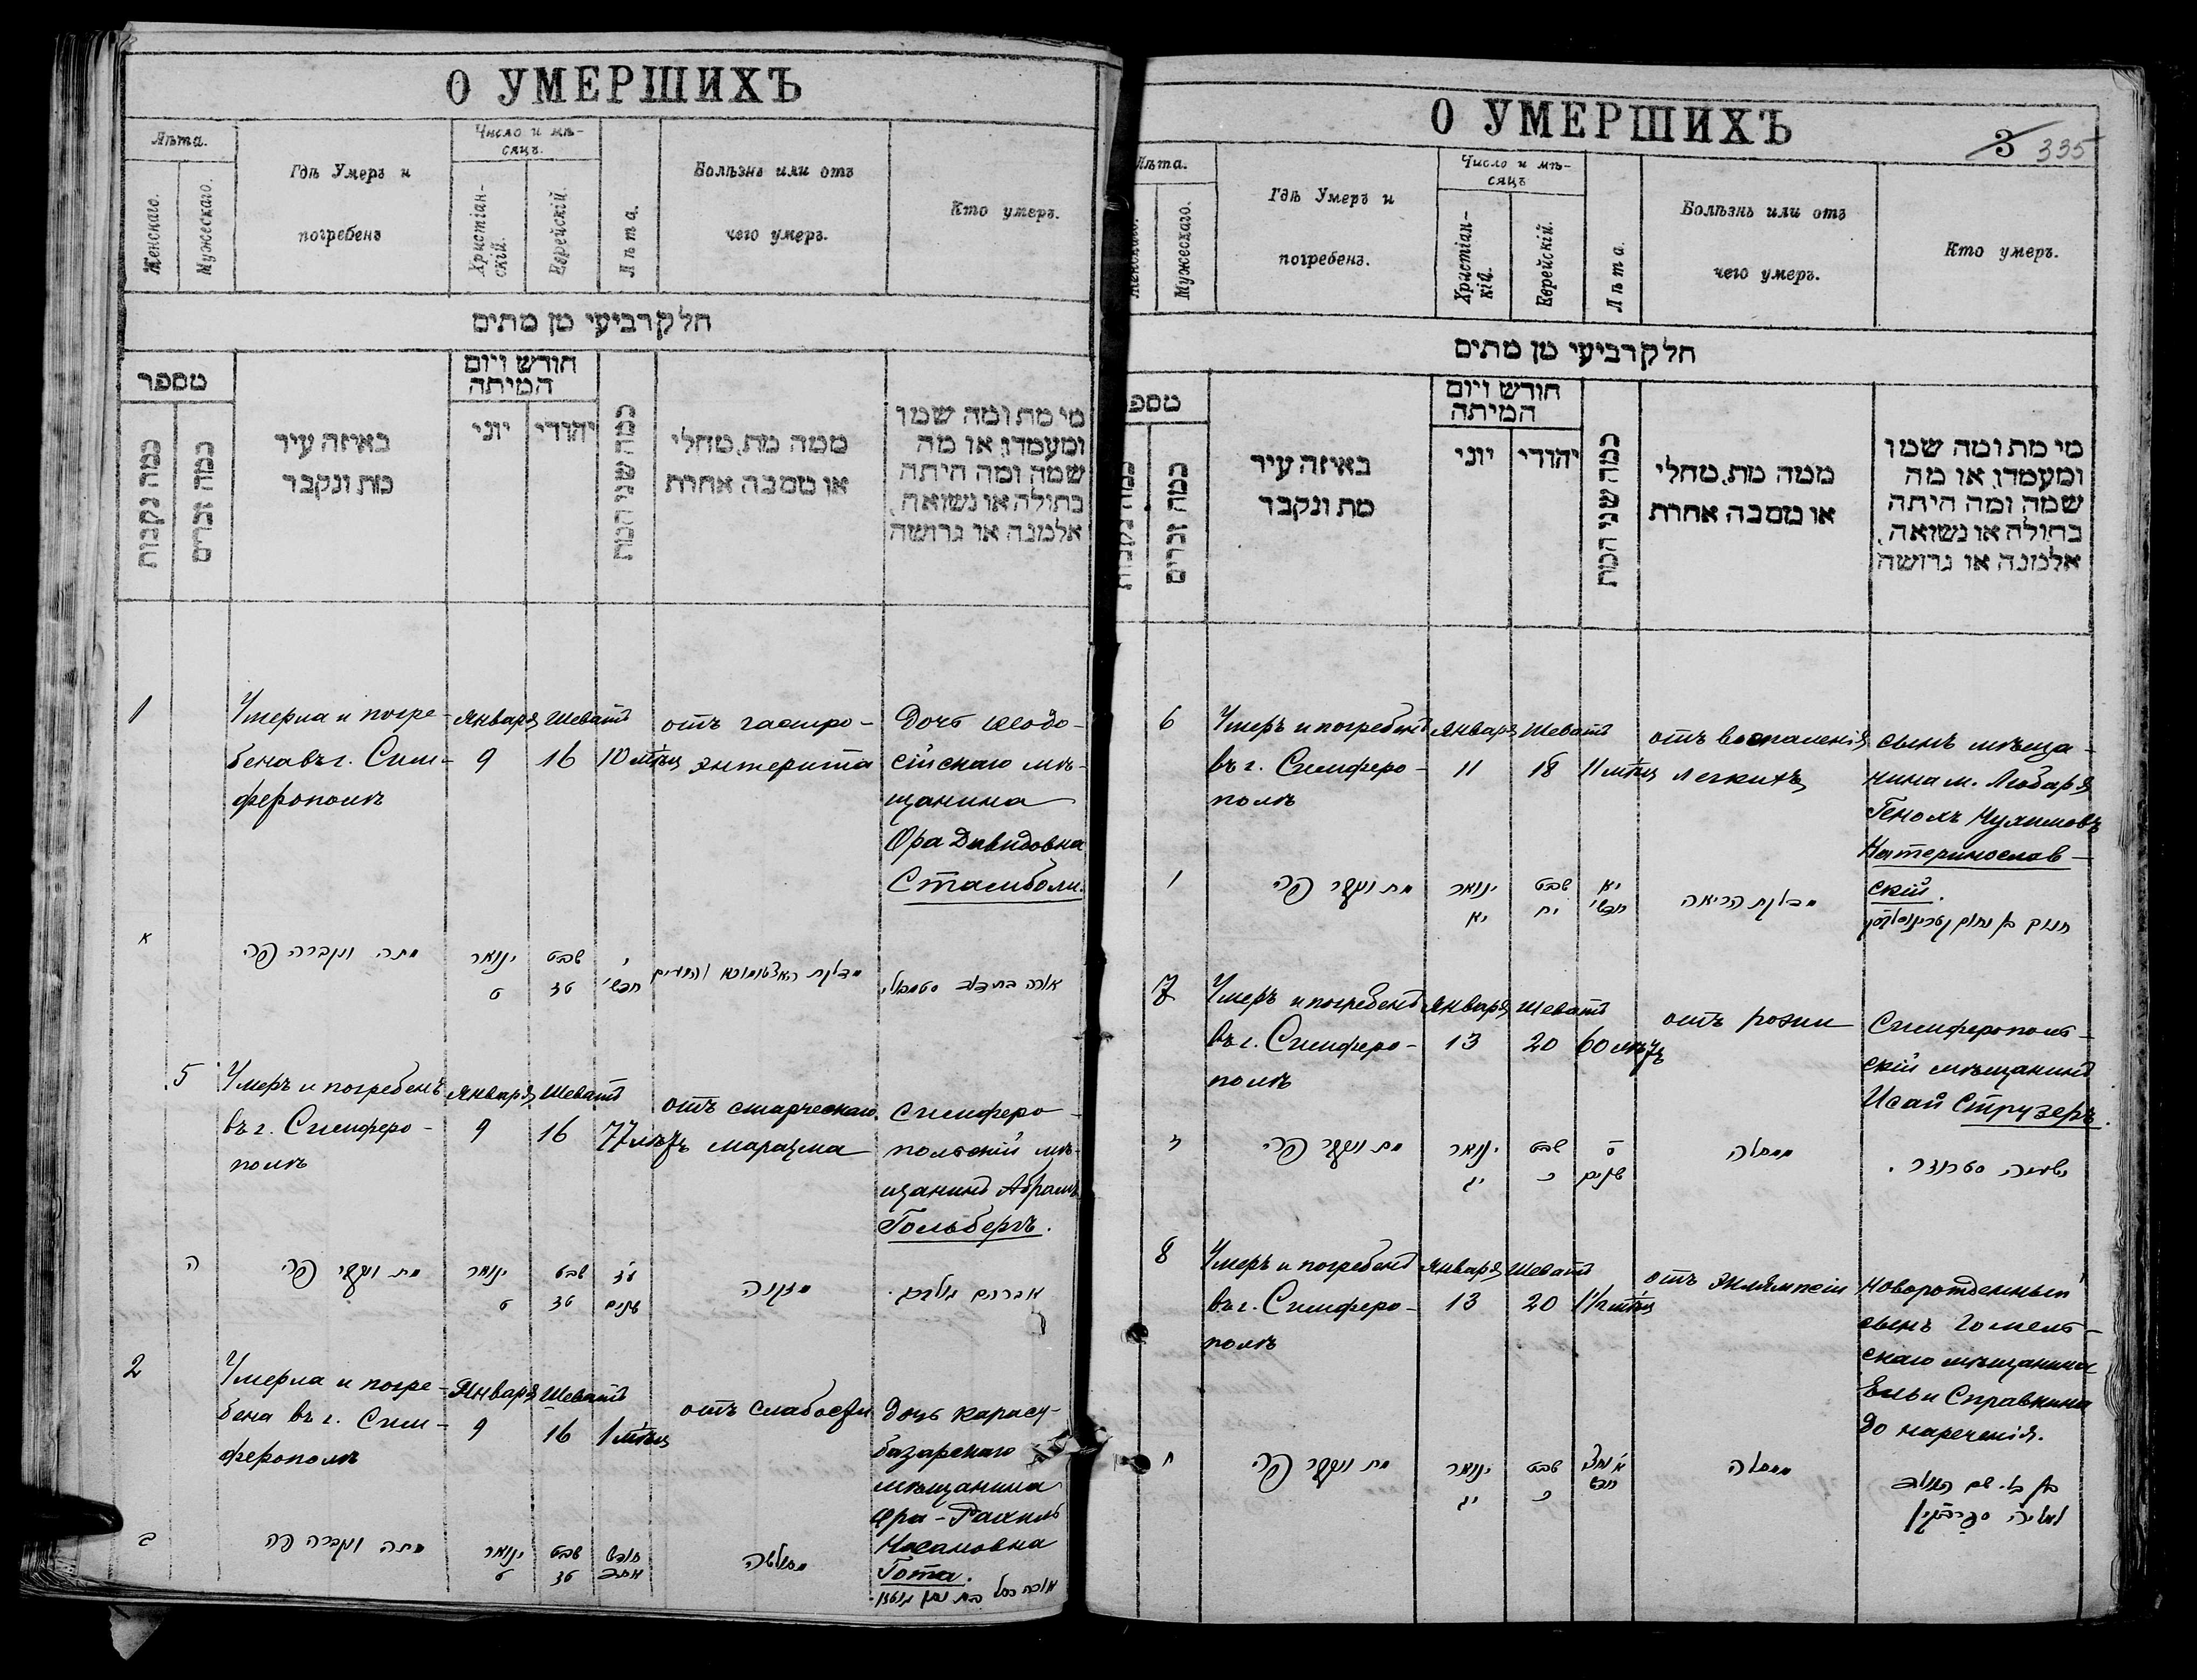 О УМЕРШИХЪ
Лѣта.
Женскаго.
Мужескаго.
Гдѣ Умеръ и
погребенъ
Число и мѣ-
сяцъ.
Христіан-
скій.
Еврейскій.
Лѣта.
Болѣзнь или отъ
чего умеръ.
Кто умеръ.
חלק רביעי מן מתים
מספר
כמה נקבות
כמה זכרים
באיזה עיר
מת ונקבר
חודש ויום
המיתה
יוני
יהודי
כמה שני המת
ממה מת, מחלי
או מסבה אחרת
מי מת ומה שמו
ומעמדו, או מה
שמה ומה היתה
בתולה או נשואה,
אלמנה או גרושה
1
Умерла и погре-
бена въ г. Сим-
ферополѣ
Января
9
Шеватъ
16
10 мѣц
отъ гастро-
энтерита
Дочь Ѳеодо-
сійскаго мѣ-
щанина
Ора Давидовна
Стамболи.
א
מתה ונקברה פה
ינואר
ט
שבט
טז
י
חדשי
5
Умеръ и погребенъ
въ г. Симферо-
полѣ
Января
9
Шеватъ
16
77 лѣтъ
отъ старческаго
маразма
Симферо-
польскій мѣ-
щанинъ Абрамъ
Гольбергъ.
ה
מת ונקבר פה
ינואר
ט
שבט
טז
ע״ז
שנים
מזקנה
אברהם גולברג.
2
Умерла и погре-
бена въ г. Сим-
ферополѣ
Января
9
Шеватъ
16
1 мѣц
отъ слабости
Дочь карасу-
базарскаго
мѣщанина
Ора-Рахиль
Насановна
Гота.
ב
מתה ונקברה פה
ינואר
ט
שבט
טז
חודש
אחד
מחולשה
О УМЕРШИХЪ
3 335
Лѣта.
Женскаго.
Мужескаго.
Гдѣ Умеръ и
погребенъ.
Число и мѣ-
сяцъ
Христіан-
кій.
Еврейскій.
Лѣта.
Болѣзнь или отъ
чего умеръ.
Кто умеръ.
חלק רביעי מן מתים
מספ
כמה נקבות
כמה זכרים
באיזה עיר
מת ונקבר
חודש ויום
המיתה
יוני
יהודי
כמה שני המת
ממה מת, מחלי
או מסבה אחרת
מי מת ומה שמו
ומעמדו, או מה
שמה ומה היתה
בתולה או נשואה,
אלמנה או גרושה
6
Умеръ и погребенъ
въ г. Симферо-
полѣ
Января
11
Шеватъ
18
11 мѣц
отъ воспаленія
легкихъ
сынъ мѣща-
нина м. Любаря
Генохъ Нухимовъ
Катеринослав-
скій.
ו
מת ונקבר פה
ינואר
יא
שבט
יח
יא
חדשי
מדלקת הריאה
7
Умеръ и погребенъ
въ г. Симферо-
полѣ
Января
13
Шеватъ
20
60 лѣтъ
отъ рожи
Симферополь-
скій мѣщанинъ
Исай Струзеръ.
ז
מת ונקבר פה
ינואר
יג
שבט
כ
ס
שנים
ממחלה
ישעיה סטרוזר.
8
Умеръ и погребенъ
въ г. Симферо-
полѣ
Января
13
Шеватъ
20
1 1/2 мѣц
отъ эклямпсіи
Новорожденный
сынъ Гомель-
скаго мѣщанина
Ельи Справкина
до нареченія.
ח
מת ונקבר פה
ינואר
יג
שבט
כ
א׳ וחצי
חדש
ממחלה
בן בלי שם